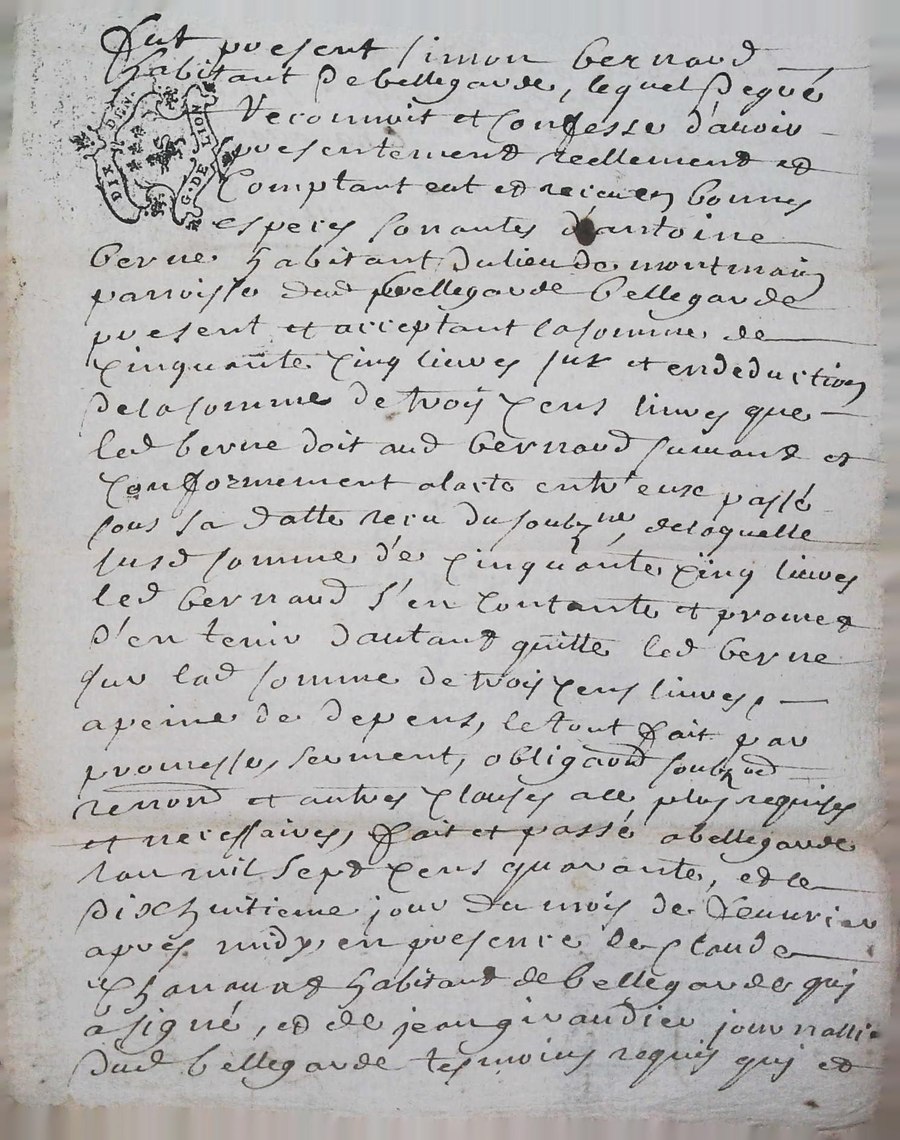 Fut present simon bernard
habitant de bellegarde, lequel de gré
Reconnoit et confesse d'avoir
presentement reellement et
comptant eut et receu en bonnes
especes sonantes d'antoine
berne habitant du lieu de montmain
parroisse dud bellegarde bellegarde
present et acceptant la somme de
cinquante cinq livres sur et en deduction
de la somme de trois cens livres que
led berne doit aud bernard suivant et
conformement a lacte entr'eux passé
sous sa datte receu du soubzne, de laquelle
susd somme de cinquante cinq livres
led bernard s'en contante et promet
d'en tenir dautant quitte led berne
sur lad somme de trois cens livres,
a peine de depens, le tout fait par
promesses, serment, obligaon soubz
renon et autres clauses a ce plus requises
et necessaires, fait et passé a bellegarde
lan mil sept cens quarante, et le
dixhuitieme jour du mois de fevrier
apres midy, en presence de Claude
habitant de bellegarde qui
a signé, et de jean giraudier journallie
dud bellegarde tesmoins requis qui et
DIX DEN.
G. DE LION